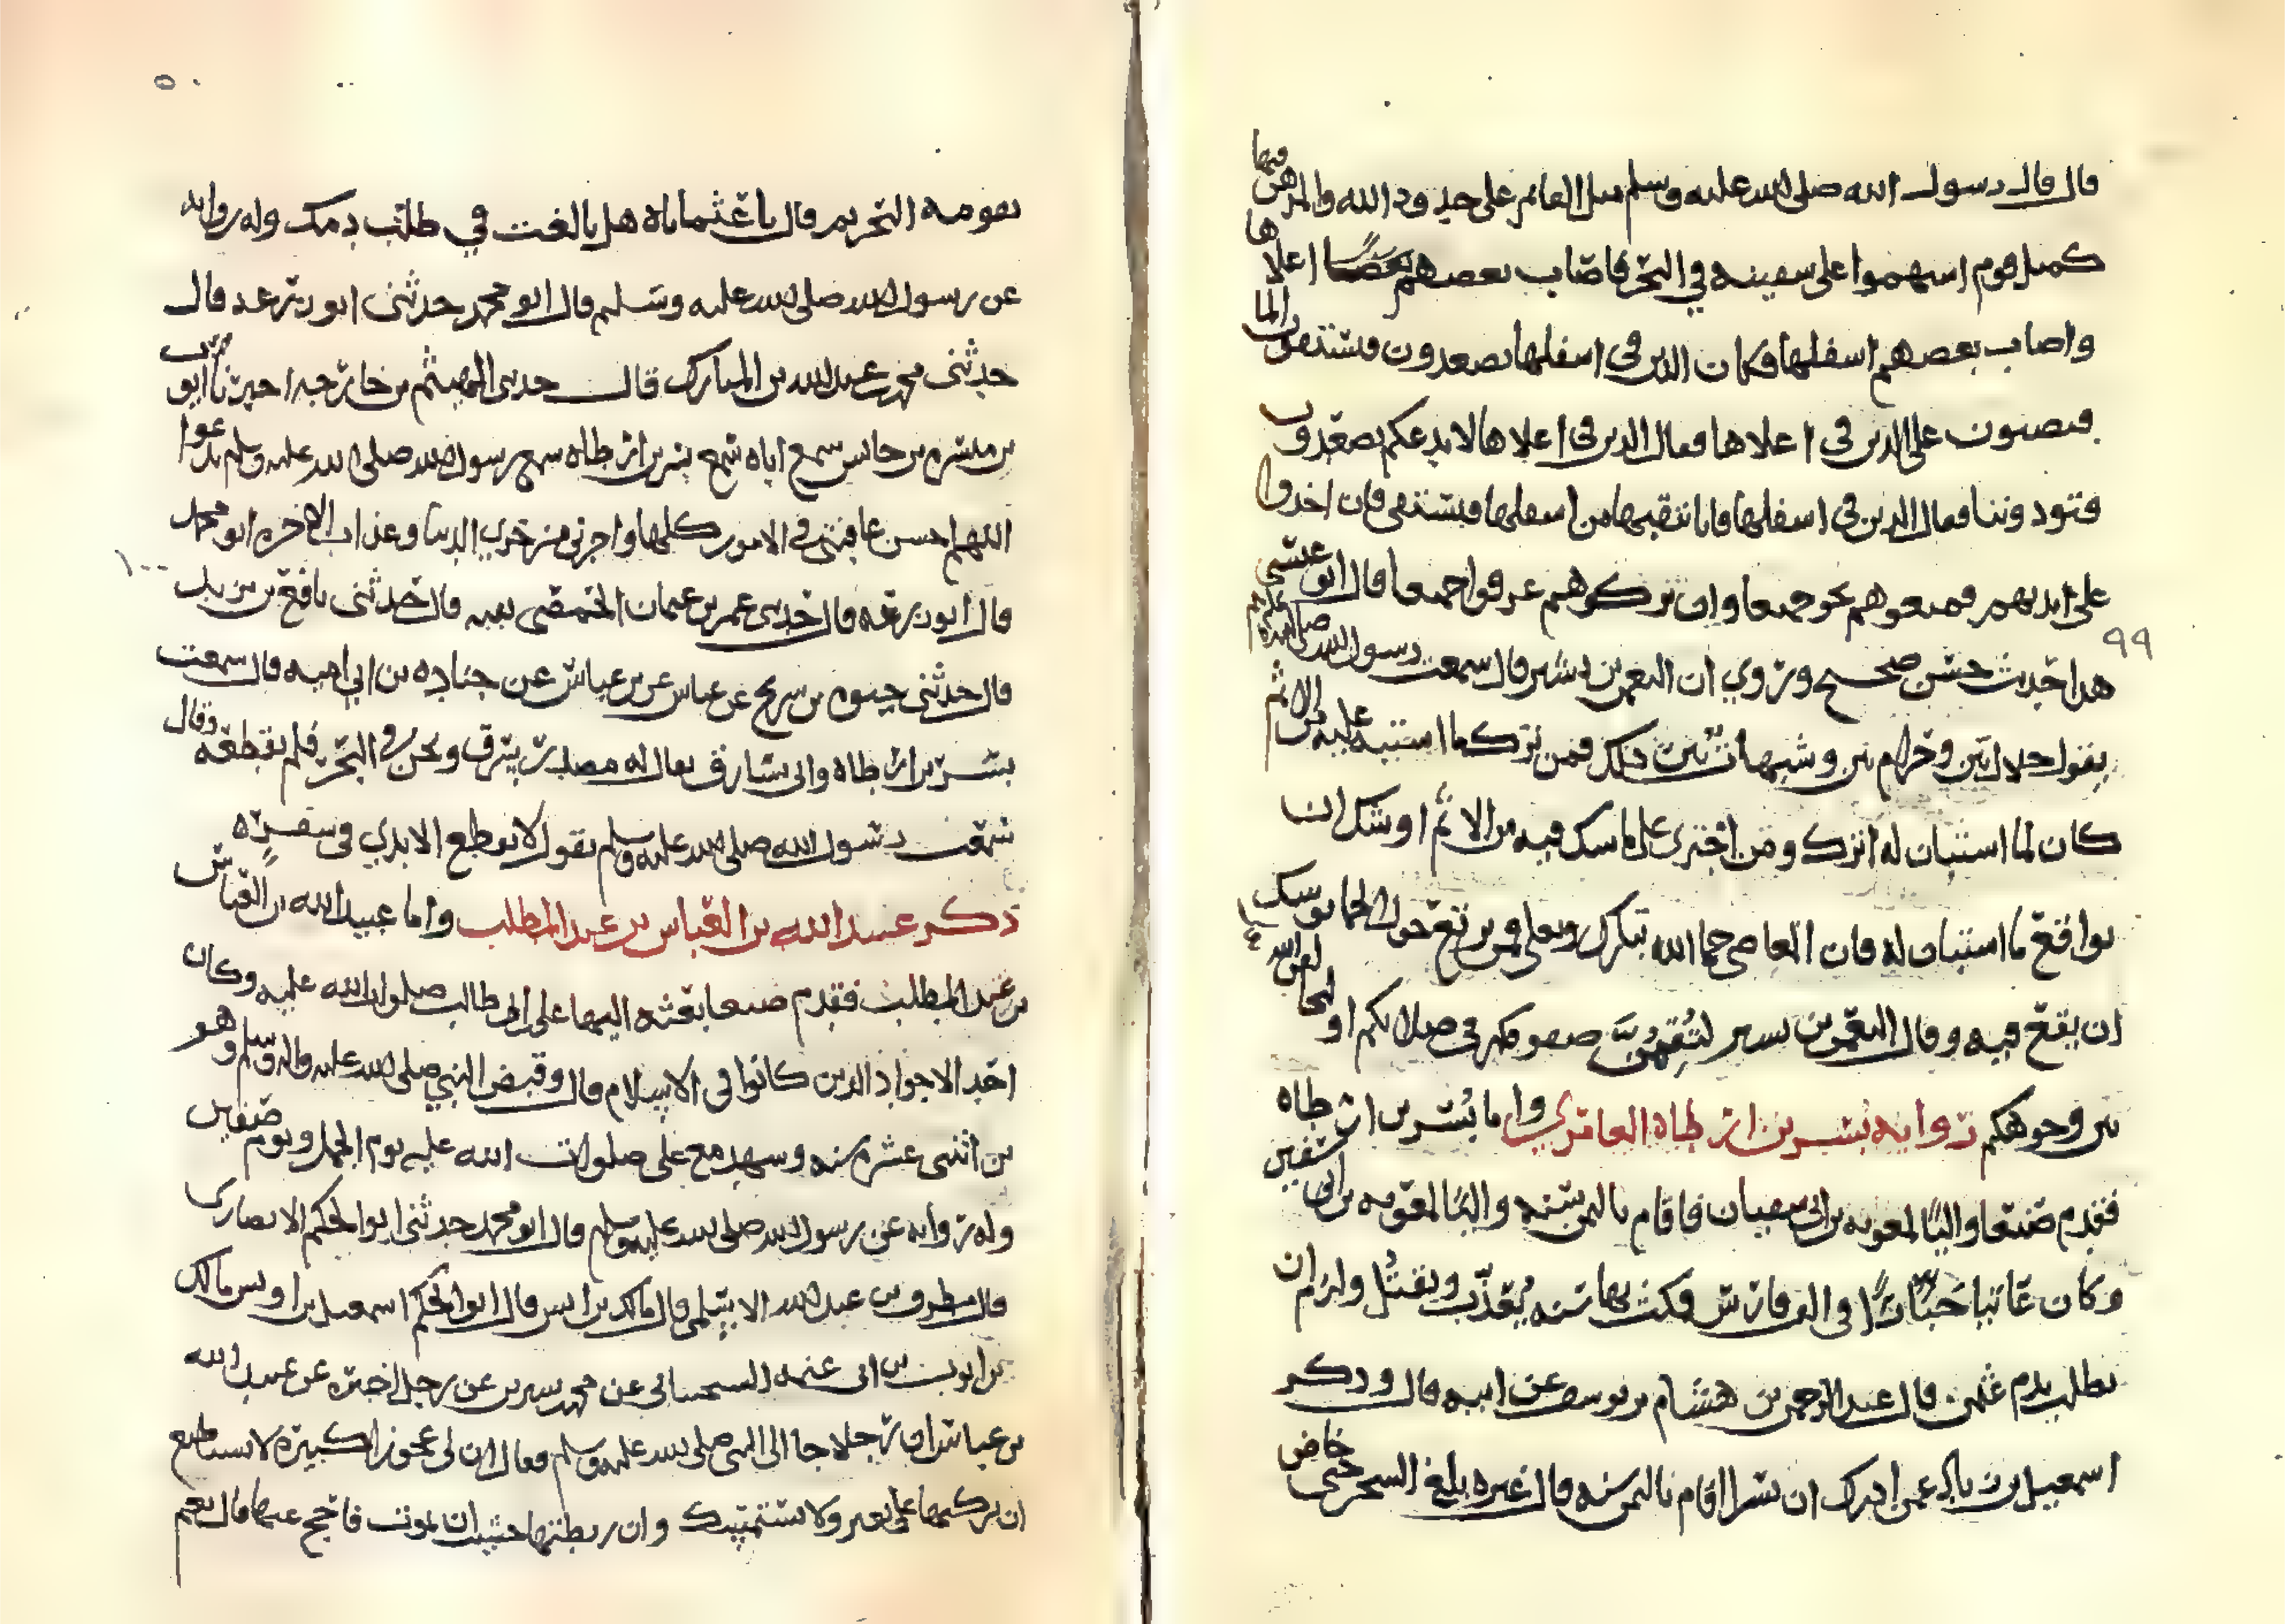 قال قال رسول الله صلى الله عليه وسلم مثل القائم على حدود الله والمدهن فيها
كمثل قوم استهموا على سفينه في البحر فاصاب بعضهم اعلاها
واصاب بعضهم اسفلها فكان الذين في اسفلها يصعدون فيستقون الما
فيصبون على الذين في اعلاها فقال الذين في اعلاها لا ندعكم تصعدون
فتوذوننا فقال الذين في اسفلها فانا ننقبها من اسفلها فنستقي فان اخذوا
على ايديهم فمنعوهم نجو جميعا وان تركوهم غرقوا جميعا قال ابو عيسى
هذا حديث حسن صحيح وروي ان النعمن بن بشير قال سمعت رسول الله صلى الله عليه
يقول حلال بين وحرام بين وشبهات بين ذلك فمن ترك ما اشتبه عليه من الاثم
كان لما استبان له اترك ومن اجترى على ما شك فيه من الاثم اوشك ان
يواقع ما استبان له فان المعاصي حما الله تبارك وتعلى ومن يرتع حول الحما يوشك
ان يقع فيه وقال النعمن بن بشير لتقيمن صفوفكم في صلاتكم او ليخالفن الله
بين وجوهكم رواية بسر بن ارطاه العامري واما بسر بن ارطاه
فقدم صنعا واليا لمعويه بن ابي سفيان فاقام باليمن سنه واليا لمعويه بن ابي سفين
وكان عاتيا جبارا في الفارس فمكث بها سنه يعذب ويقتل ولزم ان
يطلب بدم عثمن قال عبد الرحمن بن هشام بن يوسف عن ابيه قال وذكر
اسمعيل بن زياد عمن ادرك ان بسرا اقام باليمن سنه قال غيره بلغ السحر حتى خاض
٩٩
٥٠
بقومه البحر ثم قال يا عثماناه هل بالغت في طلب دمك وله روايه
عن رسول الله صلى الله عليه وسلم قال ابو محمد حدثني ابو زرعه قال
حدثني محمد عبد الله بن المبارك قال حدثني الهيثم بن خارجه اخبرنا ايوب
بن ميسره بن حابس سمع اباه سمع بسر بن ارطاه سمع رسول الله صلى الله عليه وسلم يدعوا
اللهم احسن عافيتي في الامور كلها واجرني من خزي الدنيا وعذاب الاخره ابو محمد
قال ابو زرعه قال حدثني عمر بن عثمان الحمصي بقيه قال حدثني نافع بن يزيد
قال حدثني حيوه بن سريح عن عياس عن بن عياش عن جناده بن ابي اميه قال سمعت
بسر بن ارطاه واتى بسارق يقال له مصدر يسرق ونحن في البحر فلم يقطعه وقال
سمعت رسول الله صلى الله عليه وسلم يقول لا تقطع الايدي في سفر
ذكر عبيد الله بن العباس بن عبد المطلب واما عبيد الله بن العباس
بن عبد المطلب فقدم صنعا بعثه اليها على بن ابي طالب صلوات الله عليه وكان
احد الاجواد الذين كانوا في الاسلام قال وقبض النبي صلى الله عليه واله وسلم وهو
بن اثنتي عشره سنه وشهد مع علي صلوات الله عليه يوم الجمل ويوم صفين
وله روايه عن رسول الله صلى الله عليه وسلم قال ابو محمد حدثني ابو الحكم الانصارى
قال مطرف بن عبد الله الاسلمي قال مالك بن انس قال ابو الحكم اسمعيل بن اويس مالك
عن ايوب بن ابي تميمه السختياني عن محمد سيرين عن رجل اخبره عن عبيد الله
بن عباس ان رجلا جا الى النبي صلى الله عليه وسلم فقال ان لي عجوزا كبيره لا نستطيع
ان نركبها على بعير ولا تستمسك وان ربطتها خشيت ان تموت فاحج عنها قال نعم
١٠٠